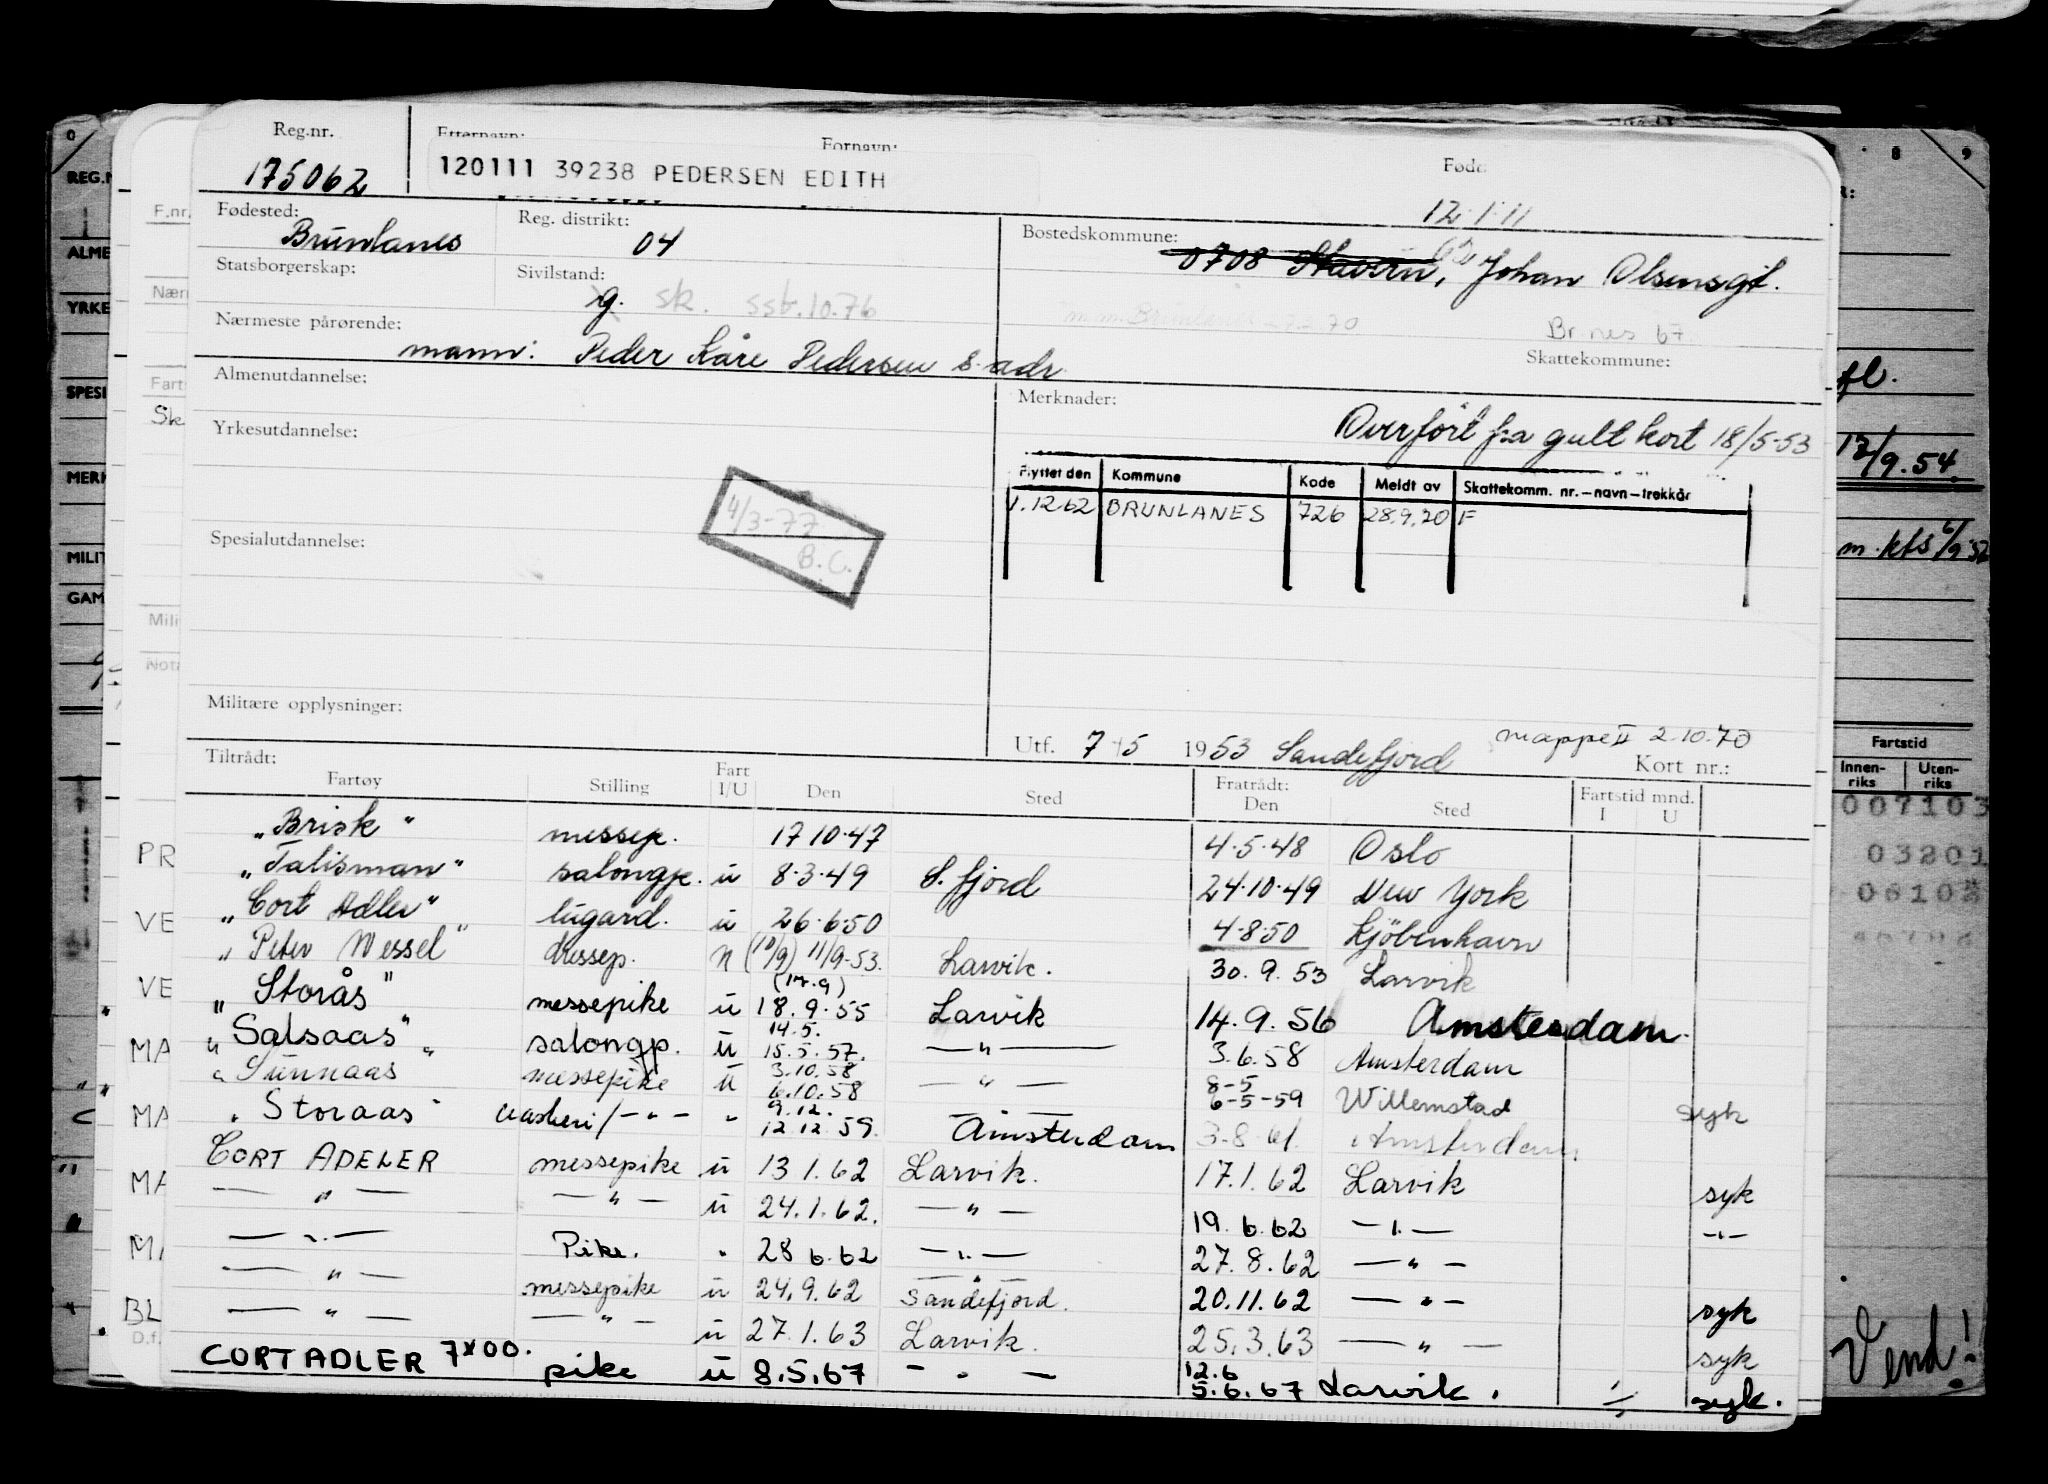 Reg.nr. Etternavn: Fornavn: Født:
175062 120111 39238 PEDERSEN EDITH 12.1.11
Fødested: Brunlanes Reg. distrikt: 04 Bostedskommune: 0708 Stavern, Johan Olsensgt.
Statsborgerskap: Sivilstand: g. sk. sst.10.76
Br.nes 67
Nærmeste pårørende: mann: Peder Kåre Pedersen s. adr. Skattekommune:
Almenutdannelse: Merknader:
Overført fra gult kort 18/5-53
Yrkesutdannelse:
Flyttet den Kommune Kode Meldt av Skattekomm. nr.-navn-trekkår
1.12.62 BRUNLANES 726 28.9.70 F
4/3-77
B.C.
Spesialutdannelse:
Militære opplysninger:
Utf. 7/5 1953 Sandefjord mappe II 2.10.70
Kort nr.:
Tiltrådt: Fratrådt:
Fartøy Stilling Fart I/U Den Sted Den Sted Fartstid mnd. I U
"Brisk" messep. 17 10.47 4.5.48 Oslo
"Talisman" salongp. u 8.3.49 S.fjord 24.10.49 New York
"Cort Adler" lugard. u 26.6.50 4.8.50 Kjöbenhavn
"Peter Wessel" dessep. N (10/9) 11/9-53. Larvik. 30.9.53 Larvik
"Storås" messepike u (17.9) 18.9.55 Larvik 14.9.56 Amsterdam.
"Salsaas" salongp. u 14.5. 15.5.57. —"— 3.6.58 Amsterdam
"Sunnaas messepike u 3.10.58 6.10.58 —"— 8-5 6-5-59 Willemstad syk
"Storaas" /-"- " 9.12. 12.12.59. Amsterdam 3.8.61. Amsterdam
CORT ADELER messepike u 13 1.62 Larvik. 17.1.62 Larvik syk
—"— —"— u 24.1.62. —"— 19.6.62 —"— -"-
—"— Pike. " 28 6.62 —"— 27.8.62 —"—
—"— messepike u 24.9.62 Sandefjord. 20.11.62 —"— syk
—"— —"— u 27.1.63 Larvik. 25.3.63 —"— syk
CORT ADLER 7X00. pike u 8.5.67 —"— 12.6 5.6.67 Larvik. syk.
0 8 9
REG.N
ALME
YRKE
SPESI
MERK
MILIT
GAM
F.nr.
Nær
Farts
Sk
Mili
Nota
PR
VE
VE
MA
MA
MA
MA
BL
D.f.
fl.
12/9.54.
m. kfs 6/9 52
Fartstid
Innen-riks Uten-riks
007103
03201
Vend!